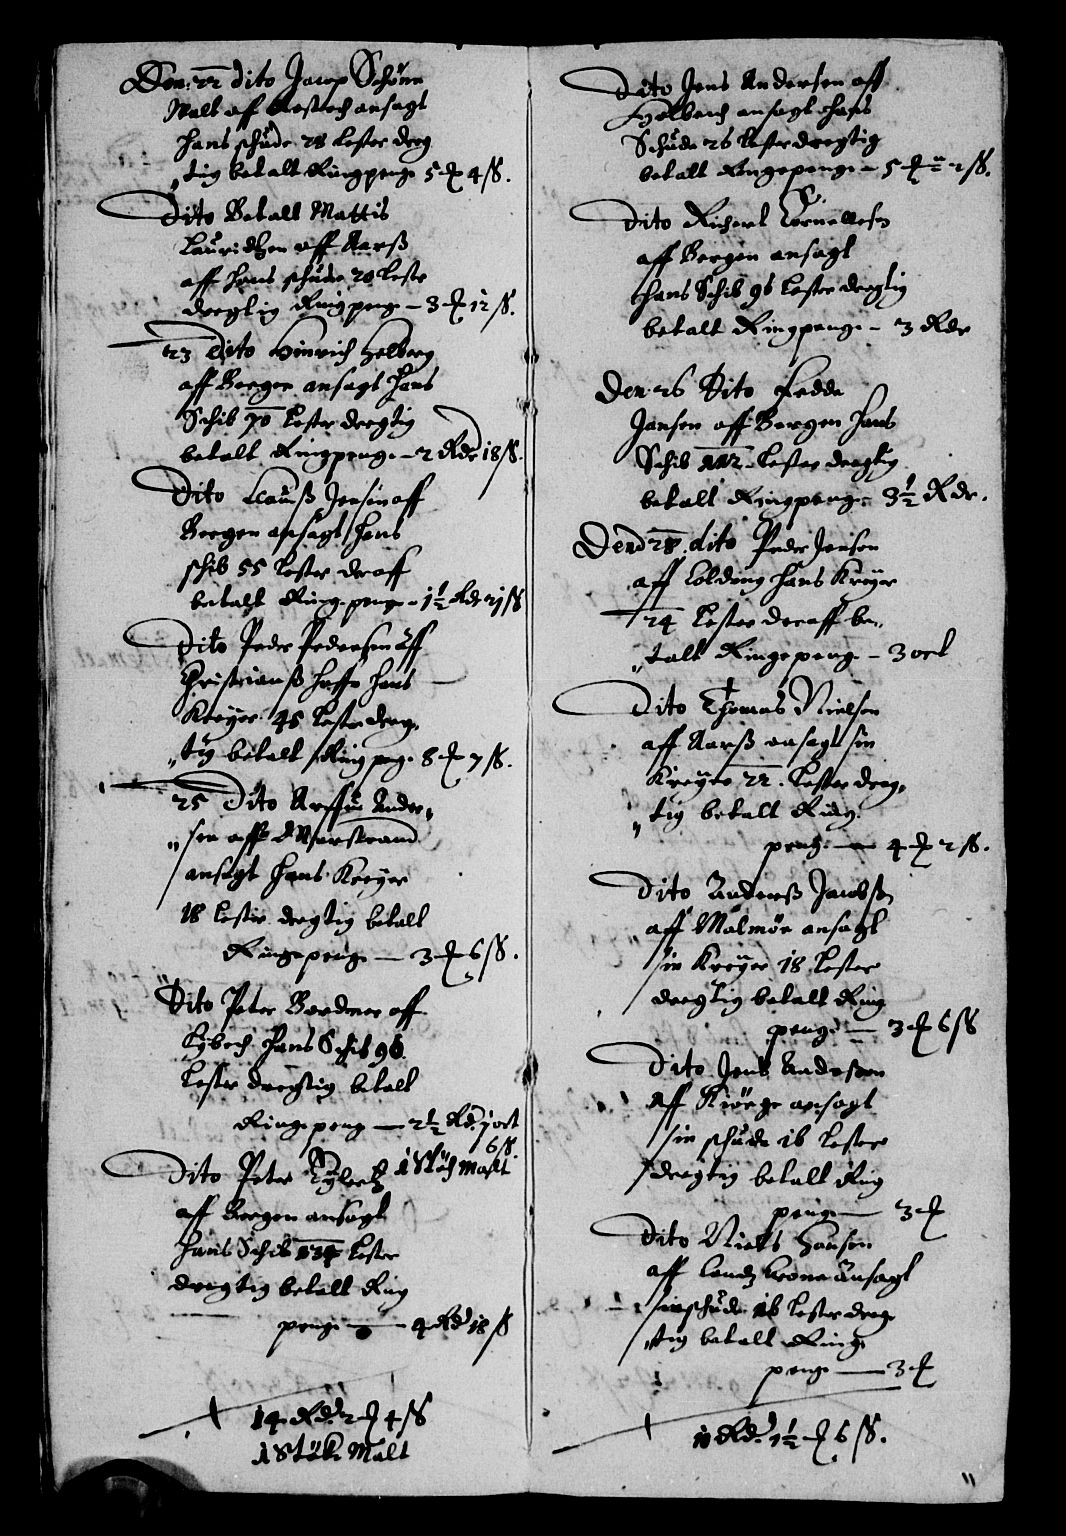 Den: 22 dito Jacop Schöne
Malt af Rostoch ansagt
hans schude 28 lester dreg
„tig betalt Ringpeng 5 ₰ 4 ß.
Dito Betalt Mattis
Lauridtzen aff Aarß
aff hans schude 20 lester
dregtig Ringpeng – 3 ₰ 12 ß.
23 dito Hinrich Helberg
aff Bergen ansagt hans
Schib 70 lester dregtig
betalt Ringpenge – 2 Rdr 18 ß.
Dito Clauß Jensen aff
Bergen ansagt hans
schib 55 lester deraff
betalt Ring penge – 1½ Rdr 21 ß
Dito Peder Pedersen aff
Christianß haffn hans
Kreyer 45 lester dreg„
„tig betalt Ring peng 8 ₰ 7 ß.
25 Dito Ander„
„sen aff Marstrand
ansagt hans Kreyer
18 lester dregtig betalt
Ringepenge — 3 ₰ 6 ß.
Dito Peter Bordmer aff
Lybech hans Schib 96
lester dregtig betalt
Ringe peng — 2½ Rd. 1 ort
6 ß.
Dito Peter 1 Stöch Malt
aff Bergen ansagt
hans Schib 134 lester
dregtig betalt Ring
penge — 4 Rd 18 ß
14 Rd. 2 ₰ 4 ß
1 Stöke Malt
Dito Jens Andersen aff
Holbech ansagt hans
Schude 26 lester dregtig
betalt Ringepenge – 5 ₰ 2 ß.
Dito Richert Cornellesen
aff Bergen ansagt
hans Schib 96 lester dregtig
betalt Ringpenge – 3 Rdr
Den 26 Dito Fedde
Jansen aff Bergen hans
Schib 112 lester dregtig
betalt Ringpenge – 3½ Rdr.
Dend 28. dito Peder Jensen
aff Colding hans Kreyer
24 lester deraff be„
„talt Ringepeng – 3 ort
Dito Thomas Nielsen
aff Aarß ansagt sin
Kreyer 22. lester dreg„
„tig betalt Ring
peng — 4 ₰ 2 ß.
Dito Anderß Jacobsen
aff Malmöe ansagt
sin Kreyer 18 lester
dregtig betalt Ring
penge — 3 ₰ 6 ß
Dito Jens Andersen
aff Kiöege ansagt
sin schude 16 lester
dregtig betalt Ring
penge — 3 ₰
Dito Niels Hansen
aff Landz Krone ansagt
sin schude 16 lester dreg
„tig betalt Ring
penge — 3 ₰
10 Rd. 1½ ₰ 6 ß.
11